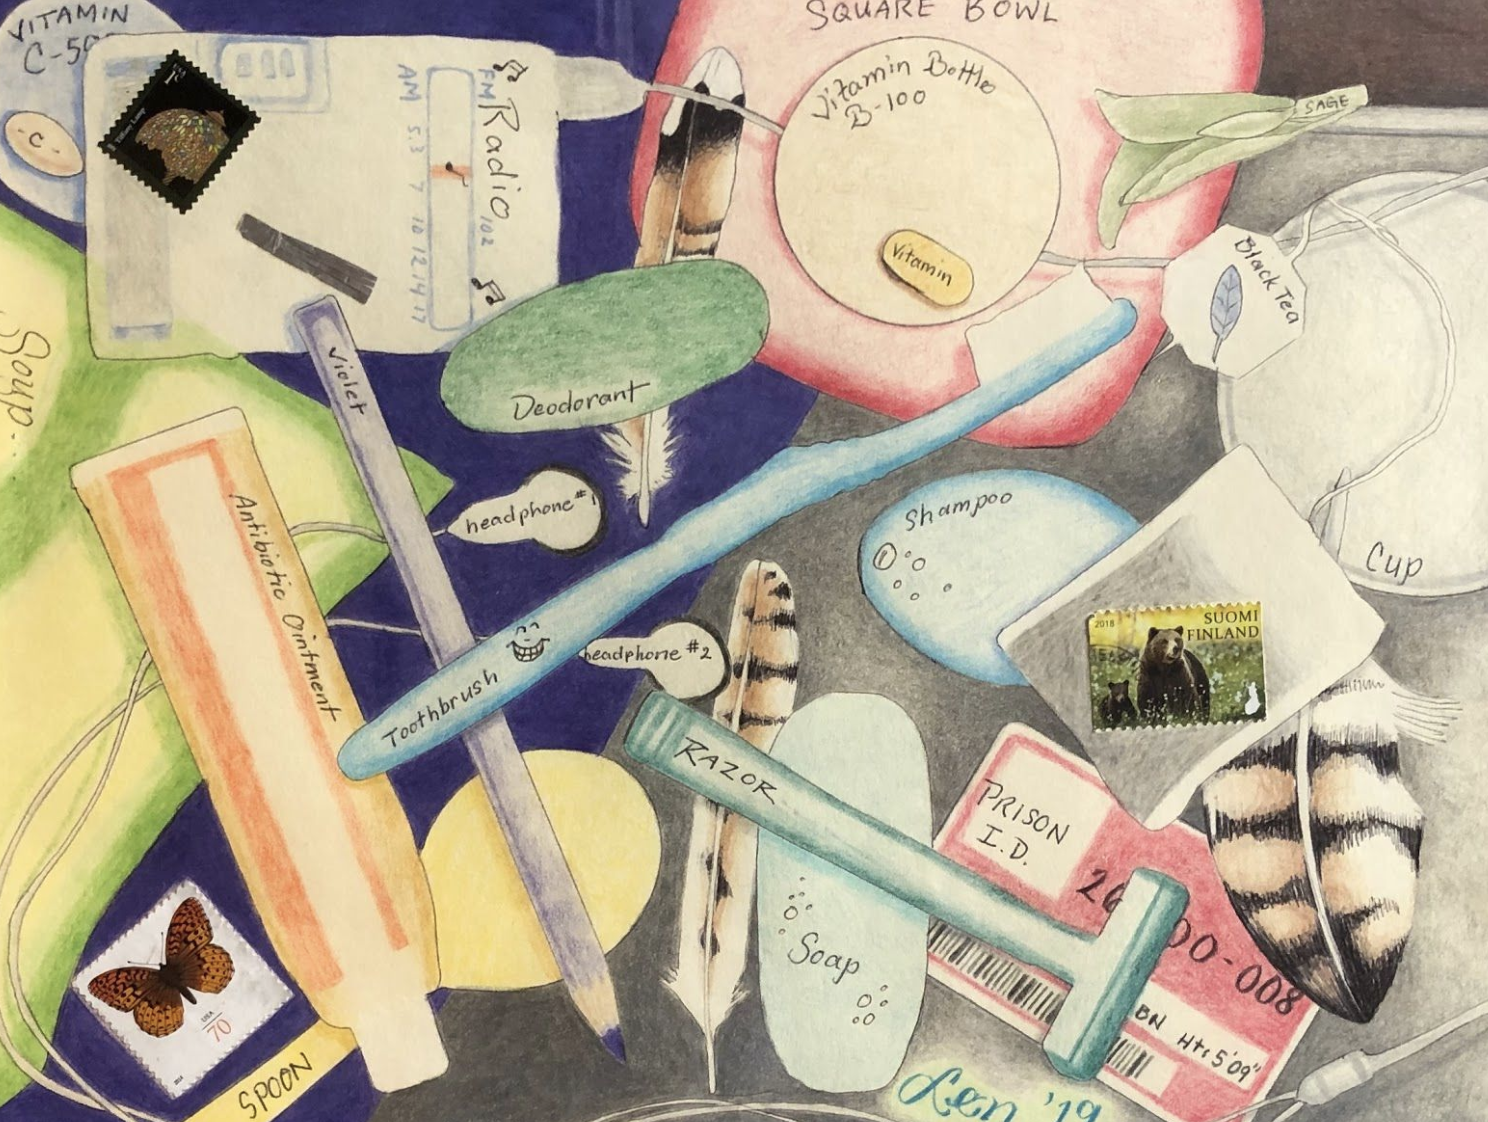 VITAMIN
C-500
C
FM
AM
Radio
102
5.3 7 10 12 14 17
SQUARE BOWL
Vitamin Bottle
B-100
Vitamin
SAGE
Black Tea
Soup
Violet
Deodorant
headphone #1
Shampoo
Cup
Antibiotic Ointment
Toothbrush
headphone #2
2018
SUOMI
FINLAND
RAZOR
PRISON
I.D.
00-008
BN Ht: 5'09"
Soap
USA
70
SPOON
Len '19